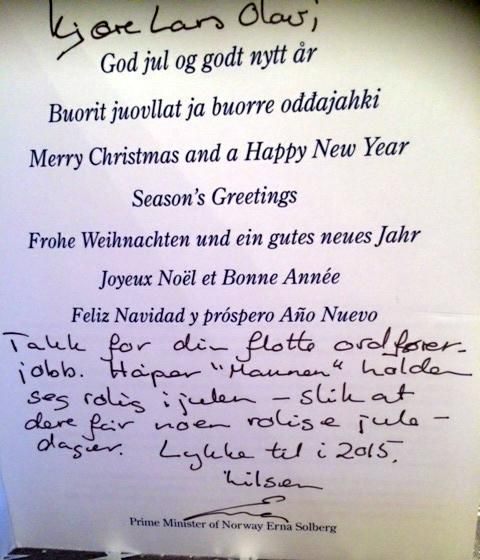 Kjære Lars Olav,
God jul og godt nytt år
Buorit juovllat ja buorre ođđajahki
Merry Christmas and a Happy New Year
Season's Greetings
Frohe Weihnachten und ein gutes neues Jahr
Joyeux Noël et Bonne Année
Feliz Navidad y próspero Año Nuevo
Takk for din flotte ordfører-
jobb. Håper "Mannen" holder
seg rolig i julen – slik at
dere får noen rolige jule-
dager. Lykke til i 2015.
hilsen
Erna
Prime Minister of Norway Erna Solberg